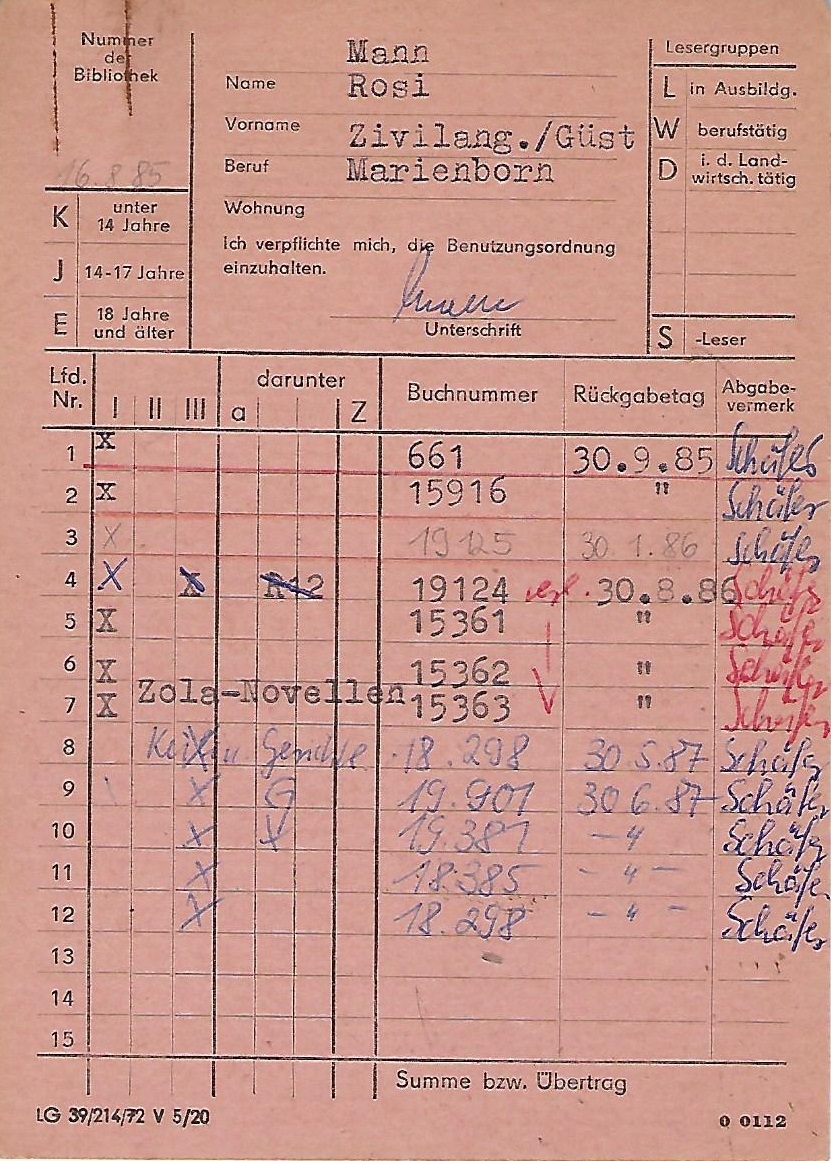 Nummer der Bibliothek
16.8.85
Mann
Name Rosi
Vorname Zivilang./Güst
Beruf Marienborn
Wohnung
Ich verpflichte mich, die Benutzungsordnung
einzuhalten.
Unterschrift
Lesergruppen
L in Ausbildg.
W berufstätig
D i. d. Land-
wirtsch. tätig
S -Leser
K unter
14 Jahre
J 14-17 Jahre
E 18 Jahre
und älter
Lfd. Nr. I II III darunter a Z Buchnummer Rückgabetag Abgabe-
vermerk
1 X 661 30.9.85 Schäfer
2 X 15916 " Schäfer
3 X 19125 30.1.86 Schäfer
4 X X 19124 30.8.86 Schäfer
5 X 15361 " Schäfer
6 X 15362 " Schäfer
7 X Zola-Novellen 15363 " Schäfer
8 18.298 30.5.87 Schäfer
9 X 19.901 30.6.87 Schäfer
10 X 19.381 -"- Schäfer
11 X 18.385 -"- Schäfer
12 X 18.298 -"- Schäfer
13
14
15
Summe bzw. Übertrag
LG 39/214/72 V 5/20
0 0112